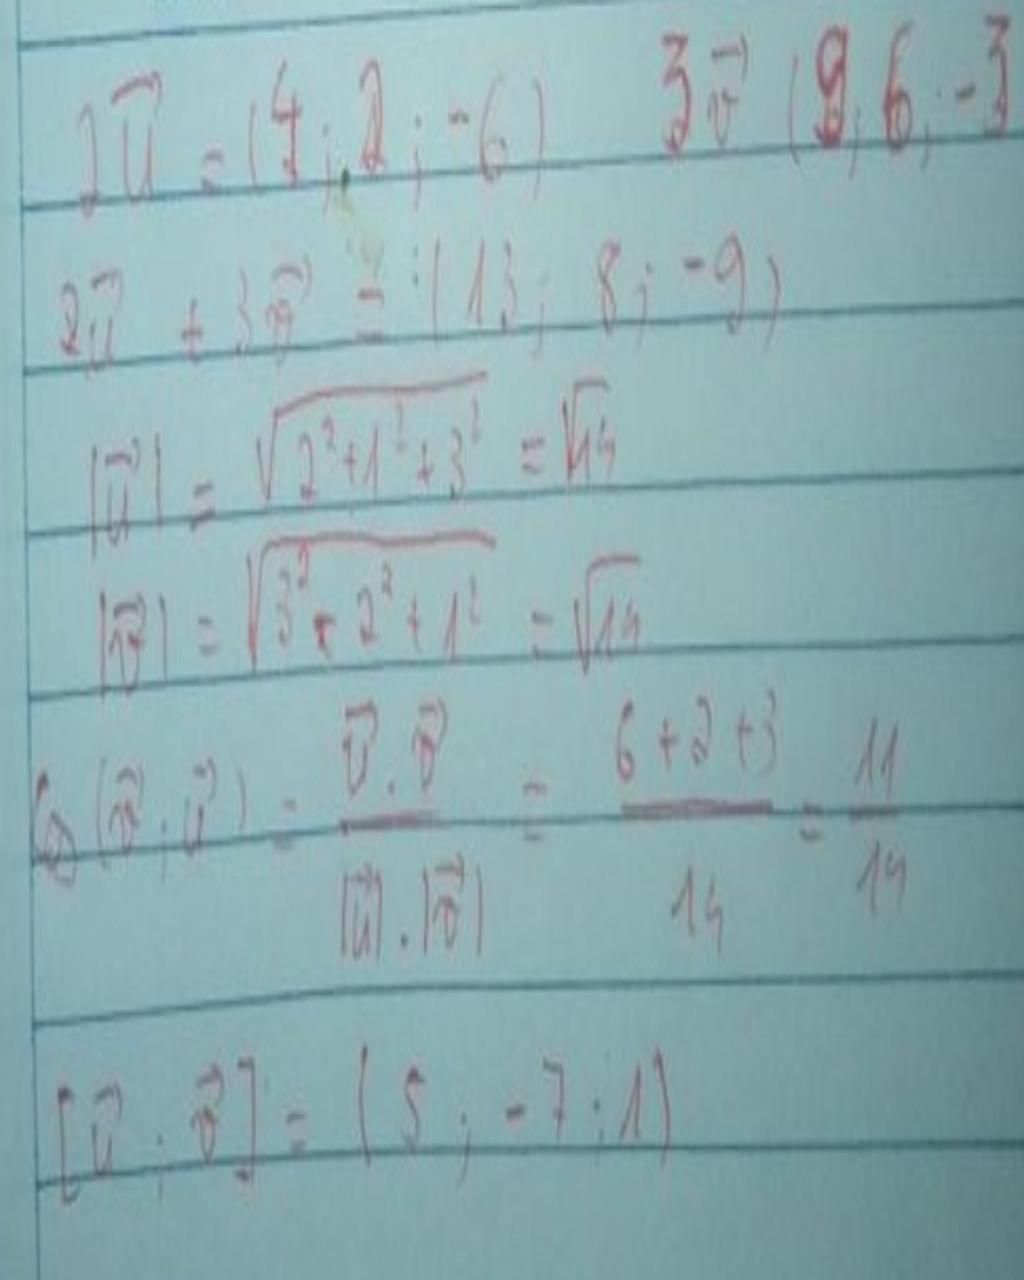 2u⃗ = (4; 2; -6) 3v⃗ (9; 6; -3
2u⃗ + 3v⃗ = (13; 8; -9)
|u⃗| = √(2² + 1² + 3²) = √14
|v⃗| = √(3² + 2² + 1²) = √14
Cos(v⃗; u⃗) = (u⃗.v⃗)/(|u⃗|.|v⃗|) = (6+2+3)/14 = 11/14
[u⃗; v⃗] = (5; -7; 1)